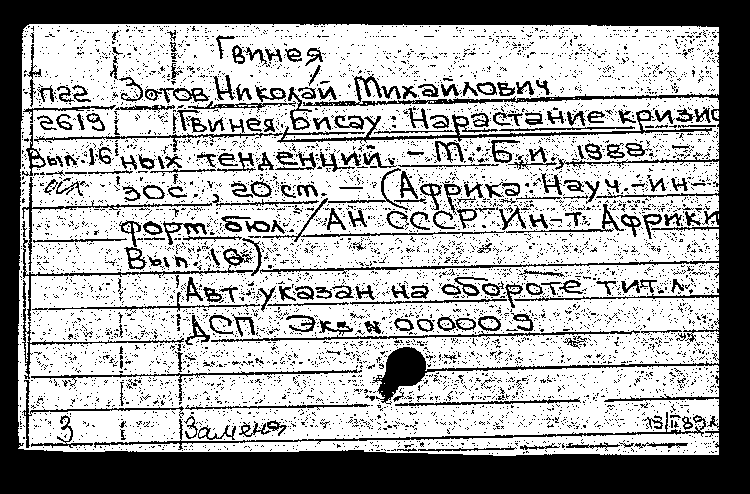 Гвинея
п22 Зотов, Николай Михайлович
2619 Гвинея, Бисау: Нарастание кризис
Вып. 16 ных тенденций. - М.: Б.и., 1988. -
30с.; 20 ст. - (Африка: Науч.-ин-
форм. бюл. / АН СССР. Ин-т Африки
Вып. 16).
Авт. указан на обороте тит. л.
ДСП Экз. N 00000 9
3 Замена